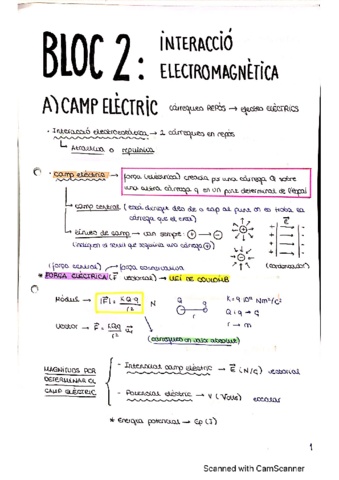 BLOC 2: INTERACCIÓ
ELECTROMAGNÈTICA
A) CAMP ELÈCTRIC càrregues REPÒS → efectes ELÈCTRICS
· Interacció electrostàtica → 2 càrregues en repòs
↳ Atractiva o repulsiva
· camp elèctric → força (elèctrica) creada per una càrrega Q sobre
una altra càrrega q en un punt determinat de l'espai
→ camp central (està dirigit des de o cap al punt on es troba la
càrrega que el crea)
→ línies de camp → van sempre: + → -
(indiquen el sentit que seguiria una càrrega +)
E
(condensador)
(força central) força conservativa
* FORÇA ELÈCTRICA (F vectorial) → LLEI DE COULOMB
Mòdul → |F| = K Q q / r² N
Q q
r
K = 9·10⁹ Nm²/C²
Q i q → C
r → m
Vector → F = K Q q / r² u
(càrregues en valor absolut)
MAGNITUDS PER
DETERMINAR EL
CAMP ELÈCTRIC
- Intensitat camp elèctric → E (N/C) vectorial
- Potencial elèctric → V (Volts) escalar
* Energia potencial → Ep (J)
1
Scanned with CamScanner